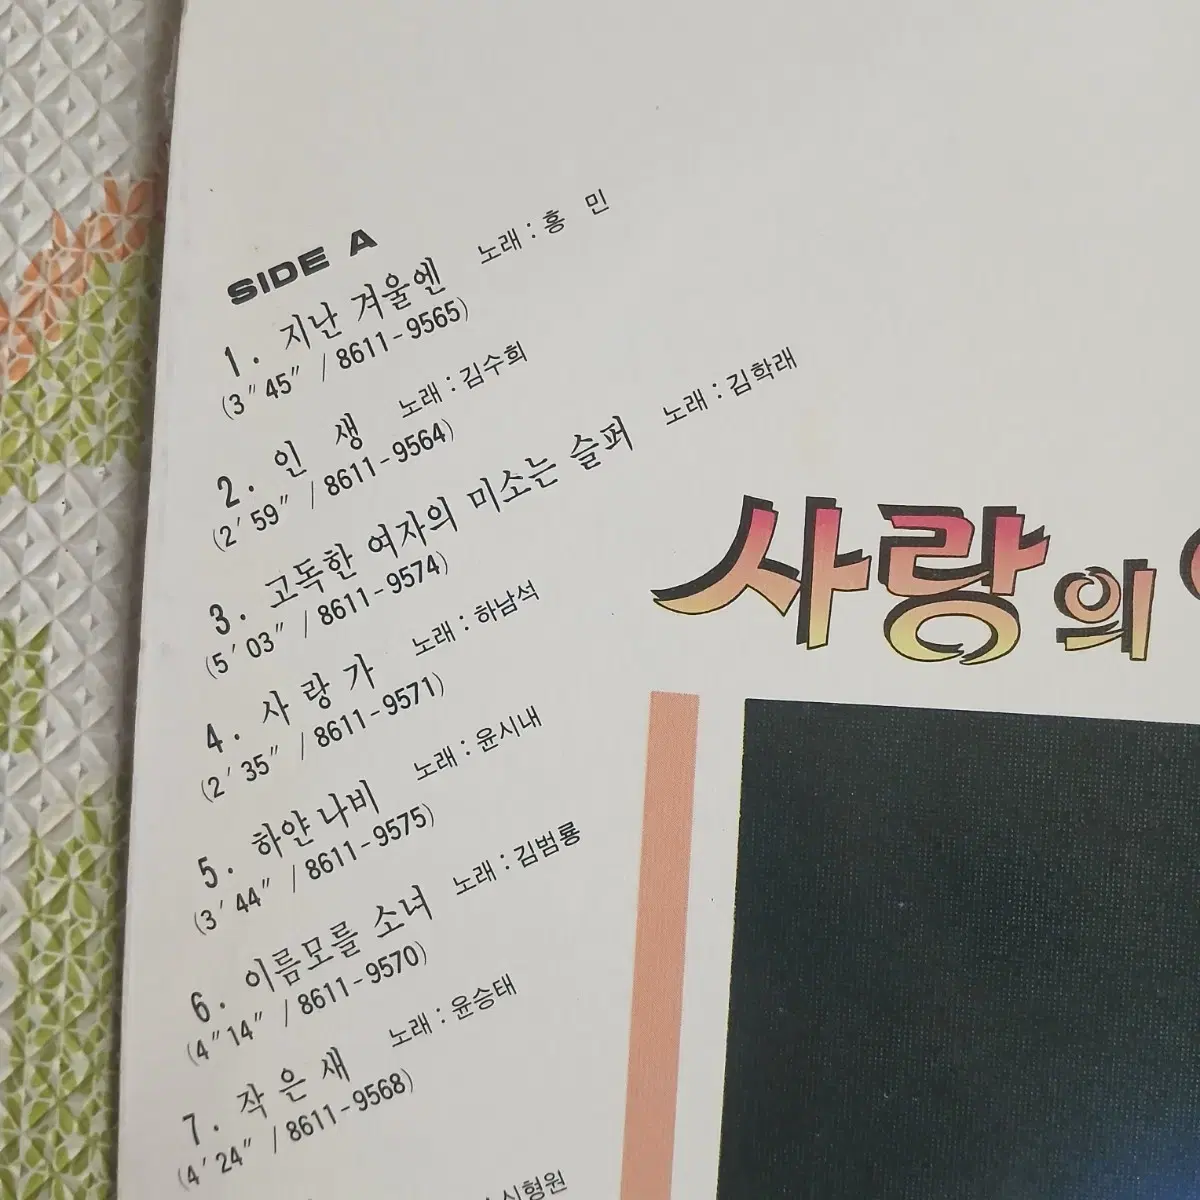 SIDE A
1. 지난 겨울엔 노래 : 홍 민
(3" 45" / 8611-9565)
2. 인 생 노래 : 김수희
(2' 59" / 8611-9564)
3. 고독한 여자의 미소는 슬퍼 노래 : 김학래
(5' 03" / 8611-9574)
4. 사 랑 가 노래 : 하남석
(2' 35" / 8611-9571)
5. 하얀 나비 노래 : 윤시내
(3' 44" / 8611-9575)
6. 이름모를 소녀 노래 : 김범룡
(4" 14" / 8611-9570)
7. 작 은 새 노래 : 윤승태
(4' 24" / 8611-9568)
신형원
사랑의